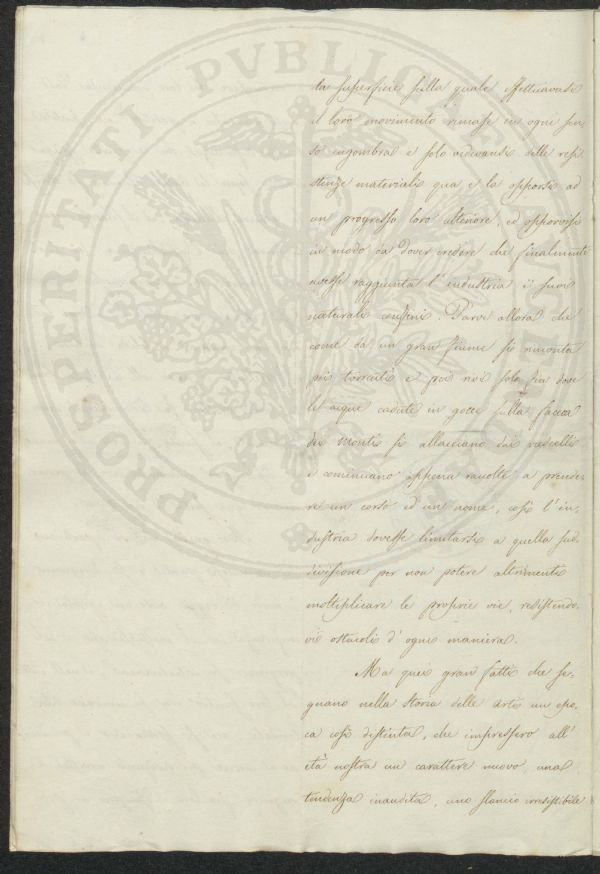 la superficie sulla quale effettuavasi
il loro movimento rimase in ogni sen-
so ingombra e solo vedevansi delle resi-
stenze materiali qua e là opporsi ad
un progresso loro ulteriore, ed opporvisi
in modo da dover credere che finalmente
avesse raggiunta l'industria i suoi
naturali confini. Parve allora che
come da un gran fiume si rimonta
più torrenti e poi rivi solo fin dove
le acque cadute in gocce sulla faccia
dei monti si allacciano dai ruscelli
e cominciano appena raccolte a prende-
re un corso ed un nome, così l'in-
dustria dovesse limitarsi a quella sud-
divisione per non potere altrimenti
moltiplicare le proprie vie, resistendo-
vi ostacoli d'ogni maniera.
Ma quei gran fatti che se-
gnano nella storia delle arti un epo-
ca così distinta, che impressero all'
età nostra un carattere nuovo, una
tendenza inaudita, uno slancio irresistibile
PROSPERITATI PVBLICAE